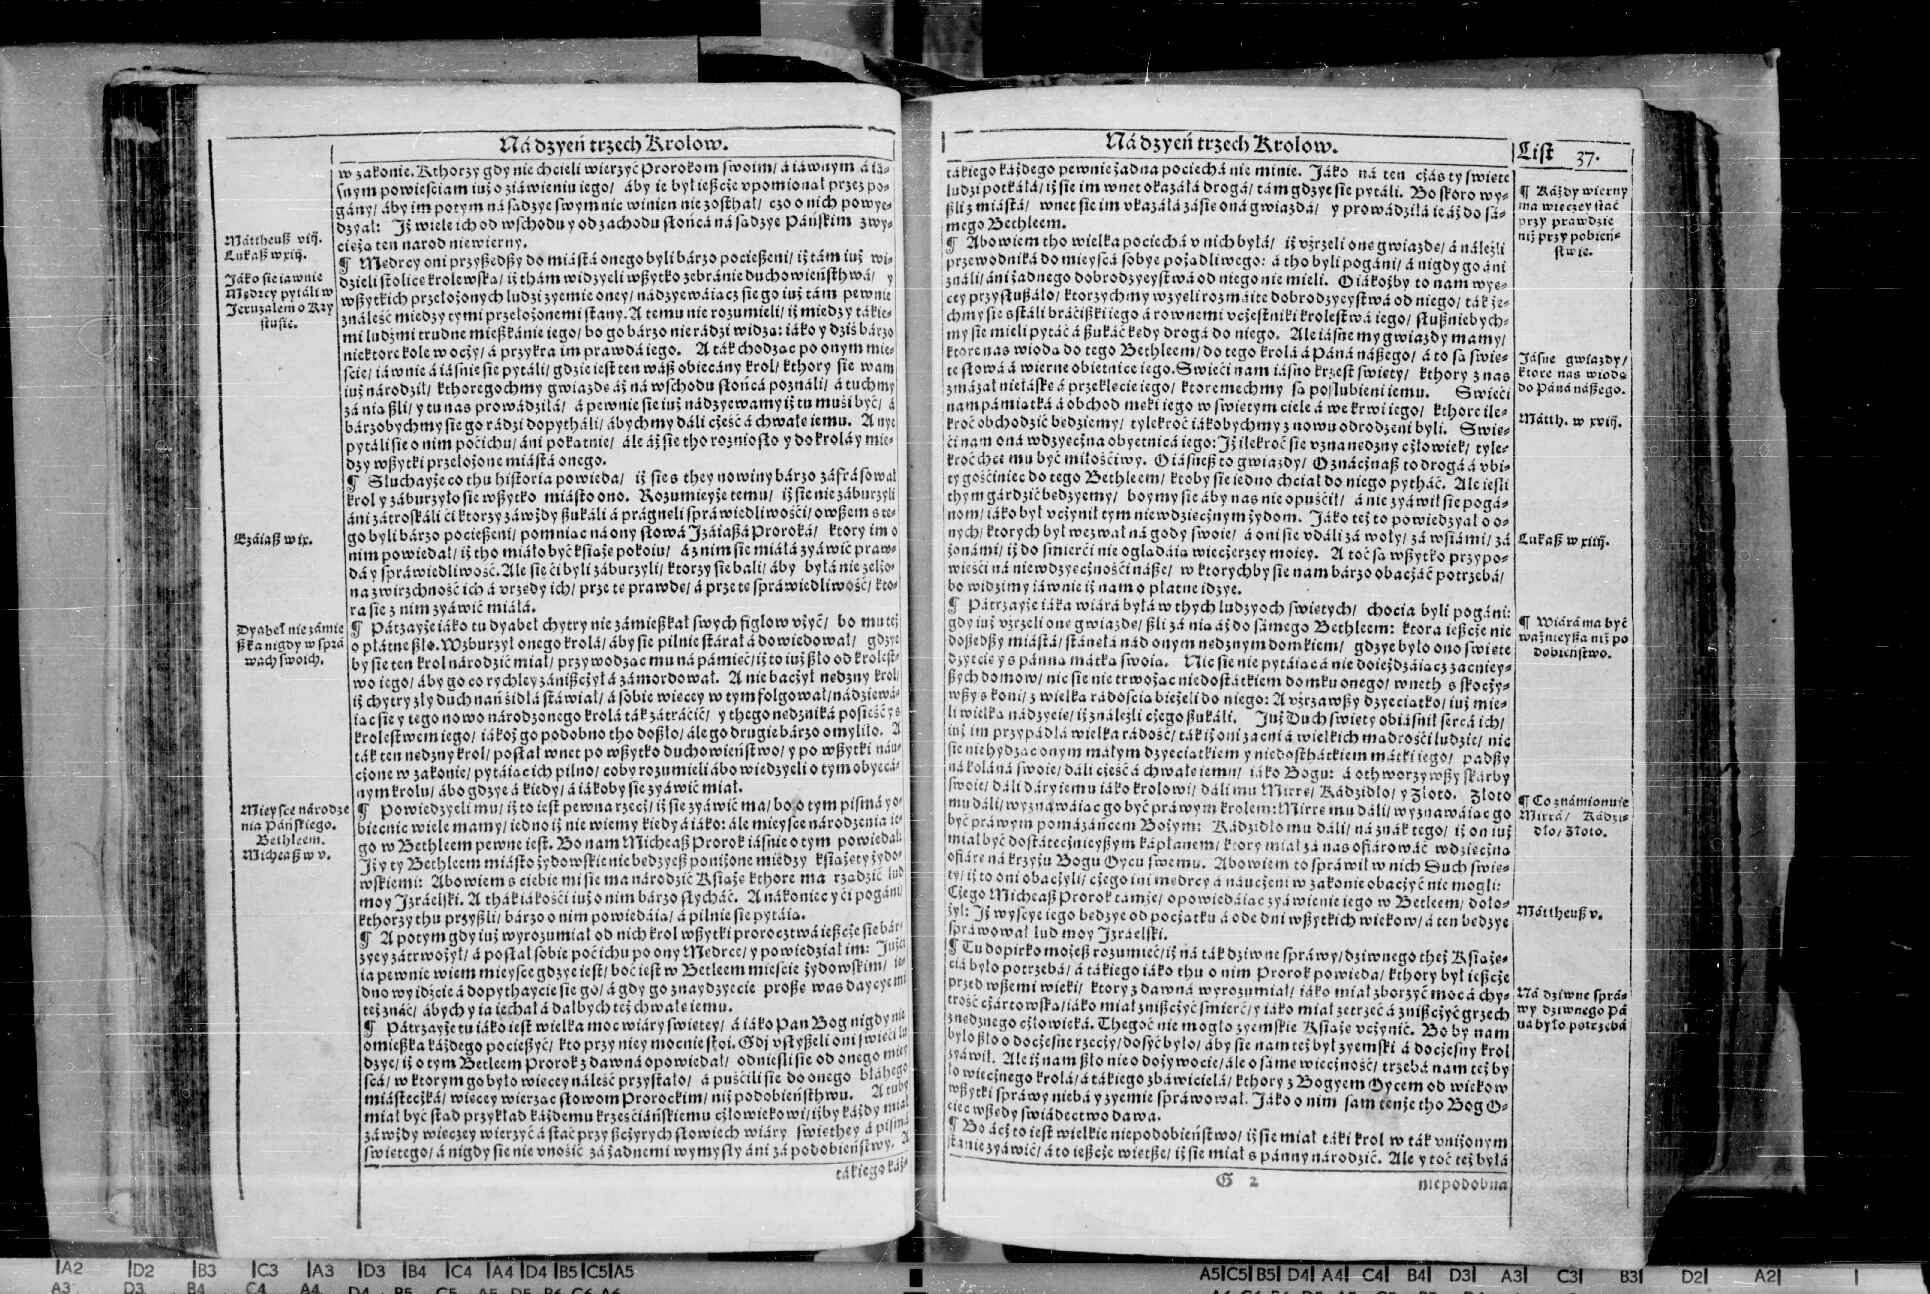 Ná dzyeń trzech Krolow.
w zakonie. Kthorzy gdy nie chcieli wierzyć Prorokom swoim/ á iáwnym á iá-
snym powieściam iuż o ziáwieniu iego/ áby ie był ießcże vpomionał przez po-
gány/ áby im potym ná sądzye swym nic winien nie zosthał/ czo o nich powye-
dzyał: Iż wiele ich od wschodu y od zachodu słońcá ná sądzye Páńskim zwy-
cięża ten narod niewierny.
Máttheuß viij.
Lukaß w xiij.
Jáko sie iáwnie
Mędrcy pytáli w
Jeruzalem o Krzy
stusie.
¶ Mędrcy oni przyßedßy do miástá onego byli bárzo pocießeni/ iż tám iuż wi-
dzieli stolice krolewska/ iż thám widzyeli wßytko zebránie duchowieństhwá/ y
wßytkich przełożonych ludzi zyemie oney/ nádzyewáiącz sie go iuż tám pewnie
ználeść miedzy tymi przełożonemi stany. A temu nie rozumieli/ iż miedzy tákie-
mi ludźmi trudne mießkánie iego/ bo go bárzo nierádzi widzą: iáko y dziś bárzo
niektore kole w ocży/ á przykra im prawdá iego. A ták chodząc po onym mie-
ście/ iáwnie á iáśnie sie pytáli/ gdzie iest ten wáß obiecány krol/ kthory sie wam
iuż národził/ kthoregochmy gwiazdę áż ná wschodu słońcá poználi/ á tuchmy
zá nią ßli/ y tu nas prowádziłá/ á pewnie sie iuż nádzyewamy iż tu muśi być/ á
bárzobychmy sie go rádzi dopytháli/ ábychmy dáli cżeść á chwałę iemu. A nye
pytáli sie o nim pocichu/ áni pokątnie/ ále áż sie tho roznioslo y do krolá y mie-
dzy wßytki przełożone miástá onego.
¶ Słuchayże co thu historia powieda/ iż sie s they nowiny bárzo záfrásował
krol y záburzyło sie wßytko miásto ono. Rozumieyże temu/ iż sie nie záburzyli
áni zátroskáli ci ktorzy záwżdy ßukáli á prágnęli spráwiedliwości/ owßem s te-
go byli bárzo pocießeni/ pomniąc ná ony słowá Izáiaßá Proroká/ ktory im o
Ezáiaß w ix.
nim powiedał/ iż tho miáło być książę pokoiu/ á z nim sie miáłá zyáwić praw-
dá y spráwiedliwość. Ale sie ci byli záburzyli/ ktorzy sie bali/ áby byłá nie zelżo-
na zwirzchność ich á vrzędy ich/ prze tę prawdę/ á prze tę spráwiedliwość/ kto-
ra sie z nim zyáwić miáłá.
Dyabeł nie zámie
ßka nigdy w sprá
wach swoich.
¶ Pátzayże iáko tu dyabeł chytry nie zámießkał swych figlow vżyć/ bo mu też
o płatne ßło. Wzburzył onego krolá/ áby sie pilnie stárał á dowiedował/ gdzye
by sie ten krol národzić miał/ przywodząc mu ná pámięć/ iż to iuż ßło od krolest-
wo iego/ áby go co rychley zánißcżył á zámordował. A nie bacżył nędzny krol/
iż chytry zły duch nań śidłá stáwiał/ á sobie więcey w tym folgował/ nádziewá-
iąc sie y tego nowo národzonego krolá ták zátrácić/ y thego nędzniká posieść y s
krolestwem iego/ iákoż go podobno tho doßło/ ále go drugie bárzo omyliło. A
ták ten nędzny krol/ posłał wnet po wßytko duchowieństwo/ y po wßytki náu-
cżone w zakonie/ pytáiąc ich pilno/ coby rozumieli ábo wiedzyeli o tym obyecá-
nym krolu/ ábo gdzye á kiedy/ á iákoby sie zyáwić miał.
Mieysce národze
nia Páńskiego.
Bethleem.
Micheaß w v.
¶ Powiedzyeli mu/ iż to iest pewna rzecż/ iż sie zyáwić ma/ bo o tym pismá yo
biecnic wiele mamy/ iedno iż nie wiemy kiedy á iáko: ále mieysce národzenia ie-
go w Bethleem pewne iest. Bo nam Micheaß Prorok iáśnie o tym powiedał:
Iż y ty Bethleem miásto żydowskie nie bedzyeß poniżone miedzy książęty żydo-
wskiemi: Abowiem s ciebie mi sie ma národzić Książę kthore ma rządzić lud
moy Izráelski. A thák iákośći iuż o nim bárzo słycháć. A nákoniec y ći pogáni/
kthorzy thu przyßli/ bárzo o nim powiedáią/ á pilnie sie pytáią.
¶ A potym gdy iuż wyrozumiał od nich krol wßytki proroctwá ießcże sie bár-
zyey zátrwożył/ á posłał sobie pocichu po ony Mędrce/ y powiedział im: Jużći
ia pewnie wiem mieysce gdzye iest/ boć iest w Betleem mieście żydowskim/ ie-
dno wy idźcie á dopythaycie sie go/ á gdy go znaydzyecie proßę was daycye mi
też znáć/ ábych y ia iechał á dałbych też chwałę iemu.
¶ Pátrzayże tu iáko iest wielka moc wiáry świętey/ á iáko Pan Bog nigdy nie
omießka káżdego pocießyć/ kto przy niey mocnie stoi. Gdj vsłyßeli oni święci lu
dzye/ iż o tym Betleem Prorok z dawná opowiedał/ odnieśli sie od onego miey
scá/ w ktorym go było więcey náleść przystało/ á puścili sie do onego błáhego
miástecżká/ więcey wierząc słowom Prorockim/ niż podobieństhwu. A tuby
miał być stąd przykład káżdemu krześciáńskiemu cżłowiekowi/ iżby káżdy miał
záwżdy więczey wierzyć á stać przy ßcżyrych słowiech wiáry świethey á pismá
świętego/ á nigdy sie nie vnośić zá żadnemi wymysły áni zá podobieństwy. A
tákiego káż-
Ná dzyeń trzech Krolow.
List 37.
tákiego káżdego pewnie żadna pociechá nie minie. Jáko ná ten cżás ty święte
ludzi potkáłá/ iż sie im wnet okazáłá drogá/ tám gdzye sie pytáli. Bo skoro wy-
ßli z miástá/ wnet sie im vkazáłá zásię oná gwiazdá/ y prowádziłá ie áż do sá-
mego Bethleem.
¶ Káżdy wierny
ma więczey stać
przy prawdzie
niż przy pobień-
stwie.
¶ Abowiem tho wielka pociechá v nich byłá/ iż vźrzeli onę gwiazdę/ á náleźli
przewodniká do mieyscá sobye pożądliwego: á tho byli pogáni/ á nigdy go áni
ználi/ áni żadnego dobrodzyeystwá od niego nie mieli. O iákożby to nam wye-
cey przysłußáło/ ktorzychmy wzyęli rozmáite dobrodzyeystwá od niego/ ták że-
chmy sie sstáli brácißki iego á rownemi vcżestniki krolestwá iego/ słußniebych-
my sie mieli pytáć á ßukáć kędy drogá do niego. Ale iásne my gwiazdy mamy/
ktore nas wiodą do tego Bethleem/ do tego krolá á Páná náßego/ á to są świę-
te słowá á wierne obietnice iego. Świeci nam iásno krzest święty/ kthory z nas
zmázał niełáskę á przeklęcie iego/ ktoremechmy są poslubieni iemu. Świeci
nam pámiątká á obchod męki iego w świętym ciele á we krwi iego/ kthore ile-
kroć obchodzić bedziemy/ tylekroć iákobychmy z nowu odrodzeni byli. Świe-
ci nam oná wdzyecżna obyetnicá iego: Iż ilekroć sie vzna nędzny cżłowiek/ tyle-
kroć chce mu być miłościwy. O iásneß to gwiazdy/ O znácżnaß to drogá á vbi-
ty gościniec do tego Bethleem/ ktoby sie iedno chciał do niego pytháć. Ale iesli
thym gárdzić bedzyemy/ boymy sie áby nas nie opuścił/ á nie zyáwił sie pogá-
nom/ iáko był vcżynił tym niewdziecżnym żydom. Jáko też to powiedzyał o o-
nych/ ktorych był wezwał ná gody swoie/ á oni sie vdáli zá woły/ zá wsiámi/ zá
żonámi/ iż do śmierci nie oglądáią wiecżerzey moiey. A toć są wßytko przypo-
wieści ná niewdzyecżności náße/ w ktorychby sie nam bárzo obacżáć potrzebá/
bo widzimy iáwnie iż nam o płatne idzye.
Jásne gwiazdy/
ktore nas wiodą
do Páná náßego.
Mátth. w xviij.
Lukaß w xiiij.
¶ Pátrzayże iáka wiárá byłá w thych ludzyoch świętych/ chocia byli pogáni:
gdy iuż vźrzeli onę gwiazdę/ ßli zá nią áż do sámego Bethleem: ktora ießcże nie
doßedßy miástá/ stánęłá nád onym nędznym domkiem/ gdzye było ono święte
dzyecię y s pánną mátką swoią. Nic sie nie pytáiąc á nie doieżdżáiącz zacniey-
ßych domow/ nic sie nie trwożąc niedostátkiem domku onego/ wneth s skocży-
wßy s koni/ z wielką rádością bieżeli do niego: A vźrzawßy dzyeciątko/ iuż mie-
li wielką nádzyeię/ iż ználeźli cżego ßukáli. Już Duch święty obiáśnił sercá ich/
iuż im przypádłá wielka rádość/ ták iż oni zacni á wielkich mądrości ludzie/ nic
sie nie hydząc onym máłym dzyeciątkiem y niedosthátkiem mátki iego/ padßy
ná koláná swoie/ dáli cżeść á chwałę iemu/ iáko Bogu: á othworzywßy skárby
swoie/ dáli dáry iemu iáko krolowi/ dáli mu Mirrę/ Kádzidło/ y Złoto. Złoto
mu dáli/ wyznawáiąc go być práwym krolem: Mirrę mu dáli/ wyznawáiąc go
być práwym pomázáńcem Bożym: Kádzidło mu dáli/ ná znák tego/ iż on iuż
miał być dostátecżnieyßym kápłanem/ ktory miał zá nas ofiárowáć wdziecżną
ofiárę ná krzyżu Bogu Oycu swemu. Abowiem to spráwił w nich Duch świę-
ty/ iż to oni obacżyli/ cżego ini mędrcy á náucżeni w zakonie obacżyć nie mogli:
Cżego Micheaß Prorok támże/ opowiedáiąc zyáwienie iego w Betleem/ doło-
żył: Iż wyscye iego bedzye od pocżątku á ode dni wßytkich wiekow/ á ten bedzye
spráwował lud moy Izráelski.
¶ Wiárá ma być
ważnieyßa niż po
dobieństwo.
¶ Co známionuie
Mirrá/ Kádzi-
dło/ złoto.
Máttheuß v.
¶ Tu dopirko możeß rozumieć/ iż ná ták dziwne spráwy/ dziwnego theż Książę-
cia było potrzebá/ á tákiego iáko thu o nim Prorok powieda/ kthory był ießcże
przed wßemi wieki/ ktory z dawná wyrozumiał/ iáko miał zborzyć moc á chy-
trość cżártowską/ iáko miał znißcżyć śmierć/ y iáko miał zetrzeć á znißcżyć grzech
znędznego cżłowieká. Thegoć nie mogło zyemskie Książę vcżynić. Bo by nam
było ßło o docżesne rzecży/ dosyć było/ áby sie nam też był zyemski á docżesny krol
zyáwił. Ale iż nam ßło nie o dożywocie/ ále o sáme wiecżność/ trzebá nam też by
ło wiecżnego krolá/ á tákiego zbáwicielá/ kthory z Bogyem Oycem od wiekow
wßytki spráwy niebá y zyemie spráwował. Jáko o nim sam tenże tho Bog O-
ciec wßędy świádectwo dawa.
Ná dziwne sprá-
wy dziwnego Pá
ná było potrzebá
¶ Bo ácż to iest wielkie niepodobieństwo/ iż sie miał táki krol w ták vniżonym
stanie zyáwić/ á to ießcże więtße/ iż sie miał s pánny národzić. Ale y toć też byłá
G 2
niepodobna